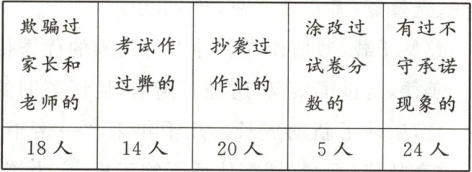 欺骗过家长和老师的 考试作过弊的 抄袭过作业的 涂改过试卷分数的 有过不守承诺现象的
18人 14人 20人 5人 24人